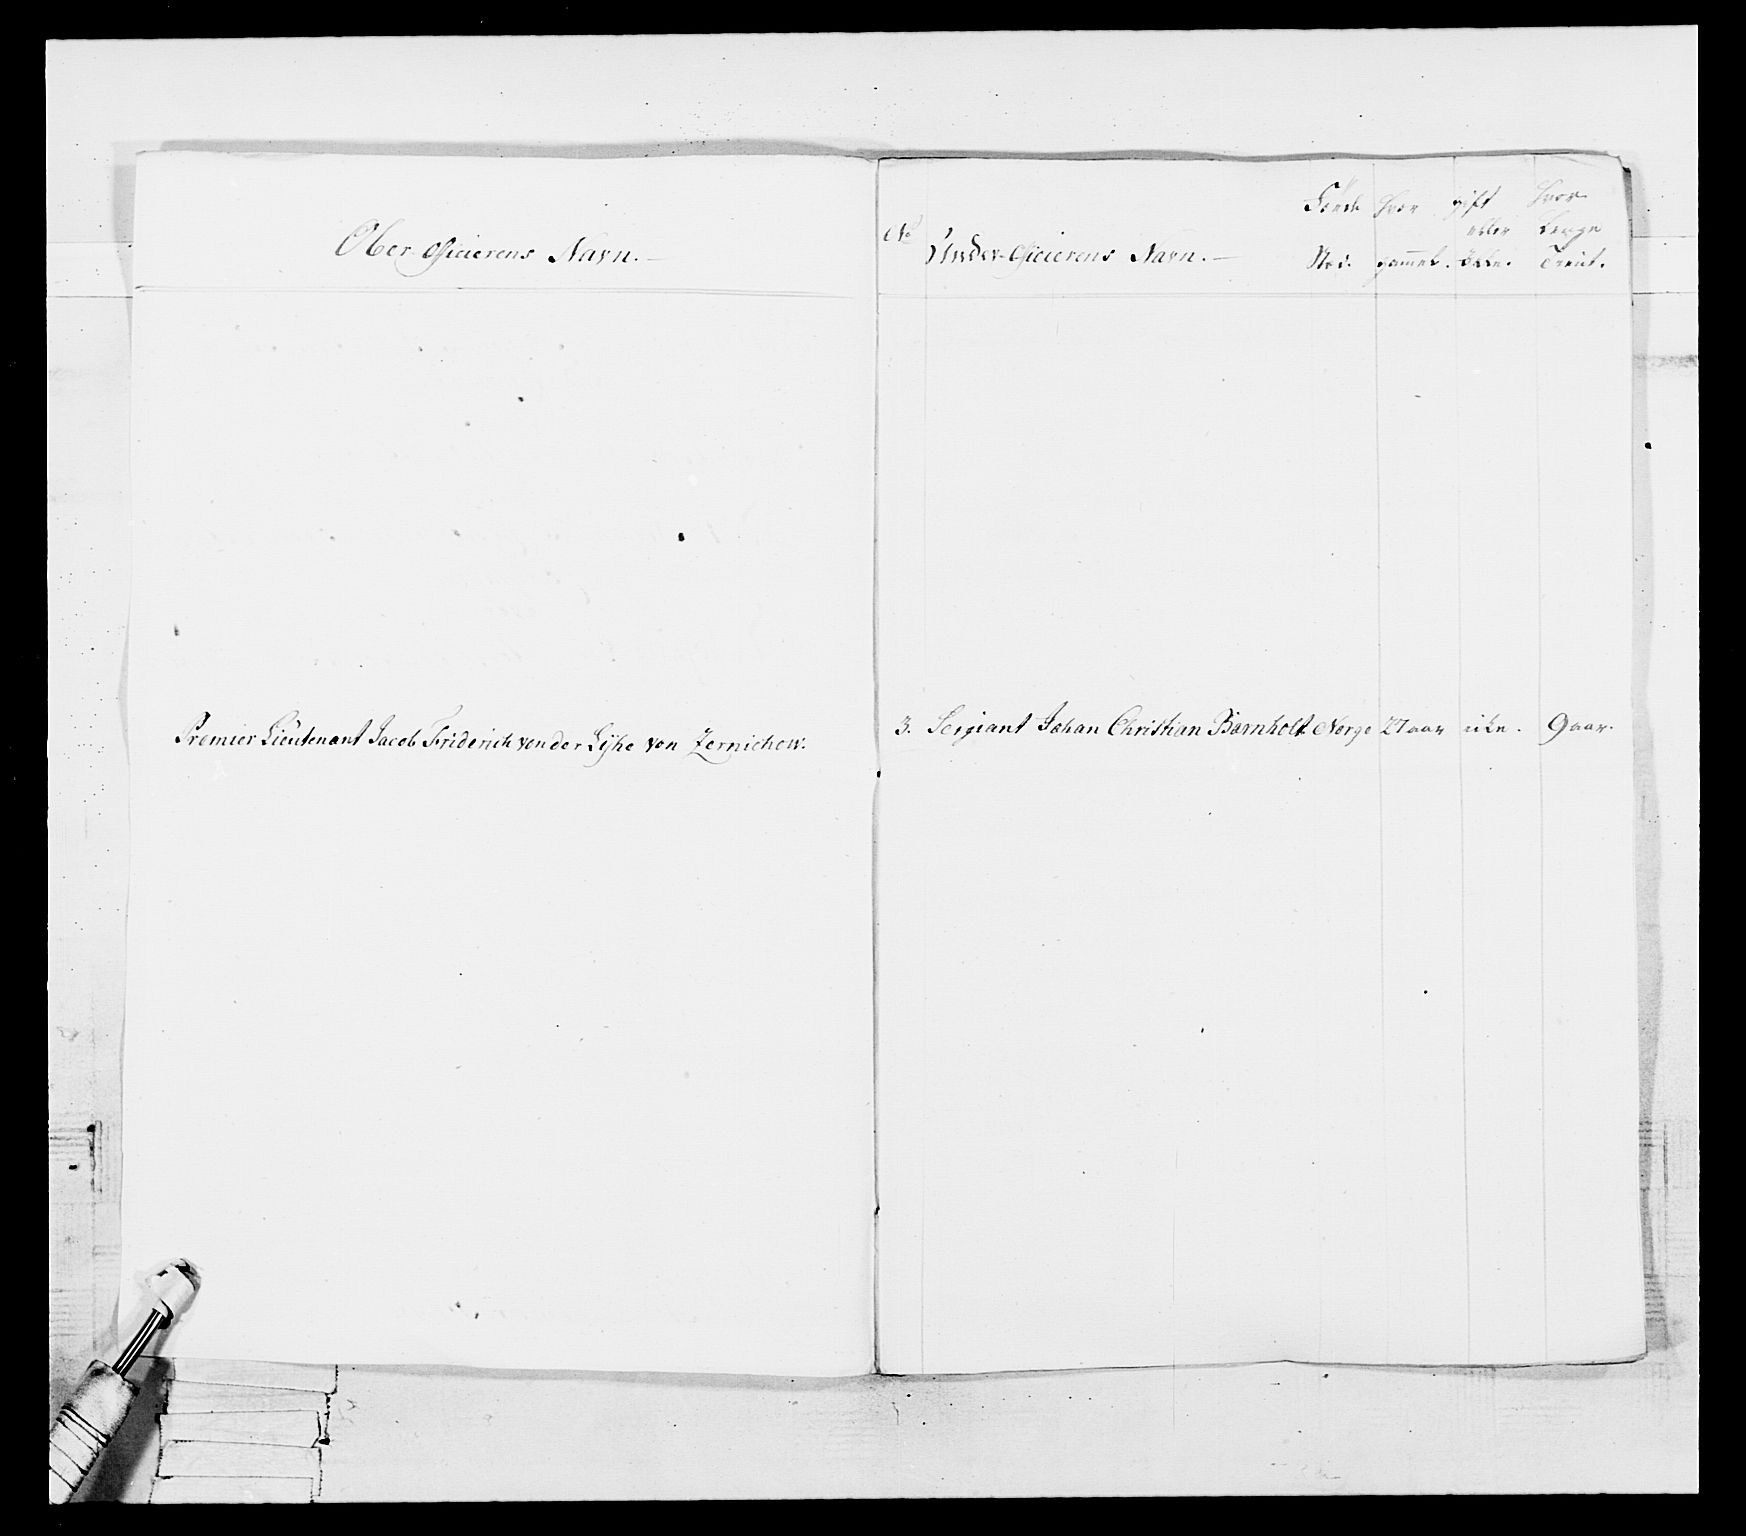 Ober-Officierens Navn.
Premier Lieutenant Jacob Friderich von der Lÿhe von Zernichow.
No Under-Officierens Navn.
Föende Sted.
hvor gammel.
gift eller Ikke.
hvor Lenge Tient.
3. Sergiant Johan Christian Barnholt Norge 27 aar ikke. 9 aar.